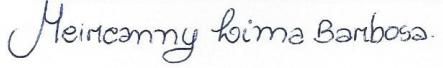 Meircanny Lima Barbosa.